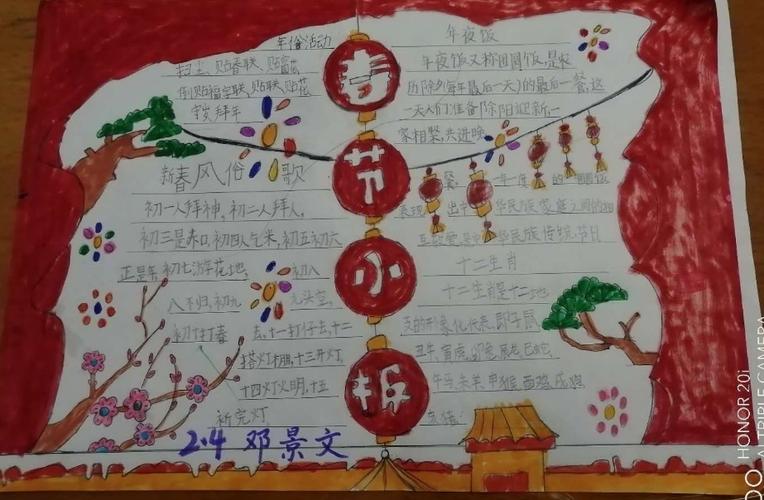 春节小报
年俗活动
扫尘、贴春联、贴窗花
倒贴福字联、贴联、贴花
守岁拜年
新春风俗歌
初一人拜神，初二人拜人，
初三是赤口，初四人乞米，初五初六
正是年，初七游花地，初八
八不归，初九九头空，
初十打春去，十一打仔去，十二
搭灯棚，十三开灯，
十四灯火明，十五
祈完灯
年夜饭
年夜饭又称团圆饭，是农
历除夕(每年最后一天)的最后一餐，这
一天人们准备除旧迎新，一
家相聚，共进晚
餐，一年一度的团圆饭
表现出中华民族家庭之间的
互敬爱，是中华民族传统节日
十二生肖
十二生肖是十二地
支的形象化代表，即子鼠
丑牛、寅虎、卯兔、辰龙、巳蛇、
午马、未羊、申猴、酉鸡、戌狗
亥猪。
2.4 邓景文
HONOR 20i
AI TRIPLE CAMERA